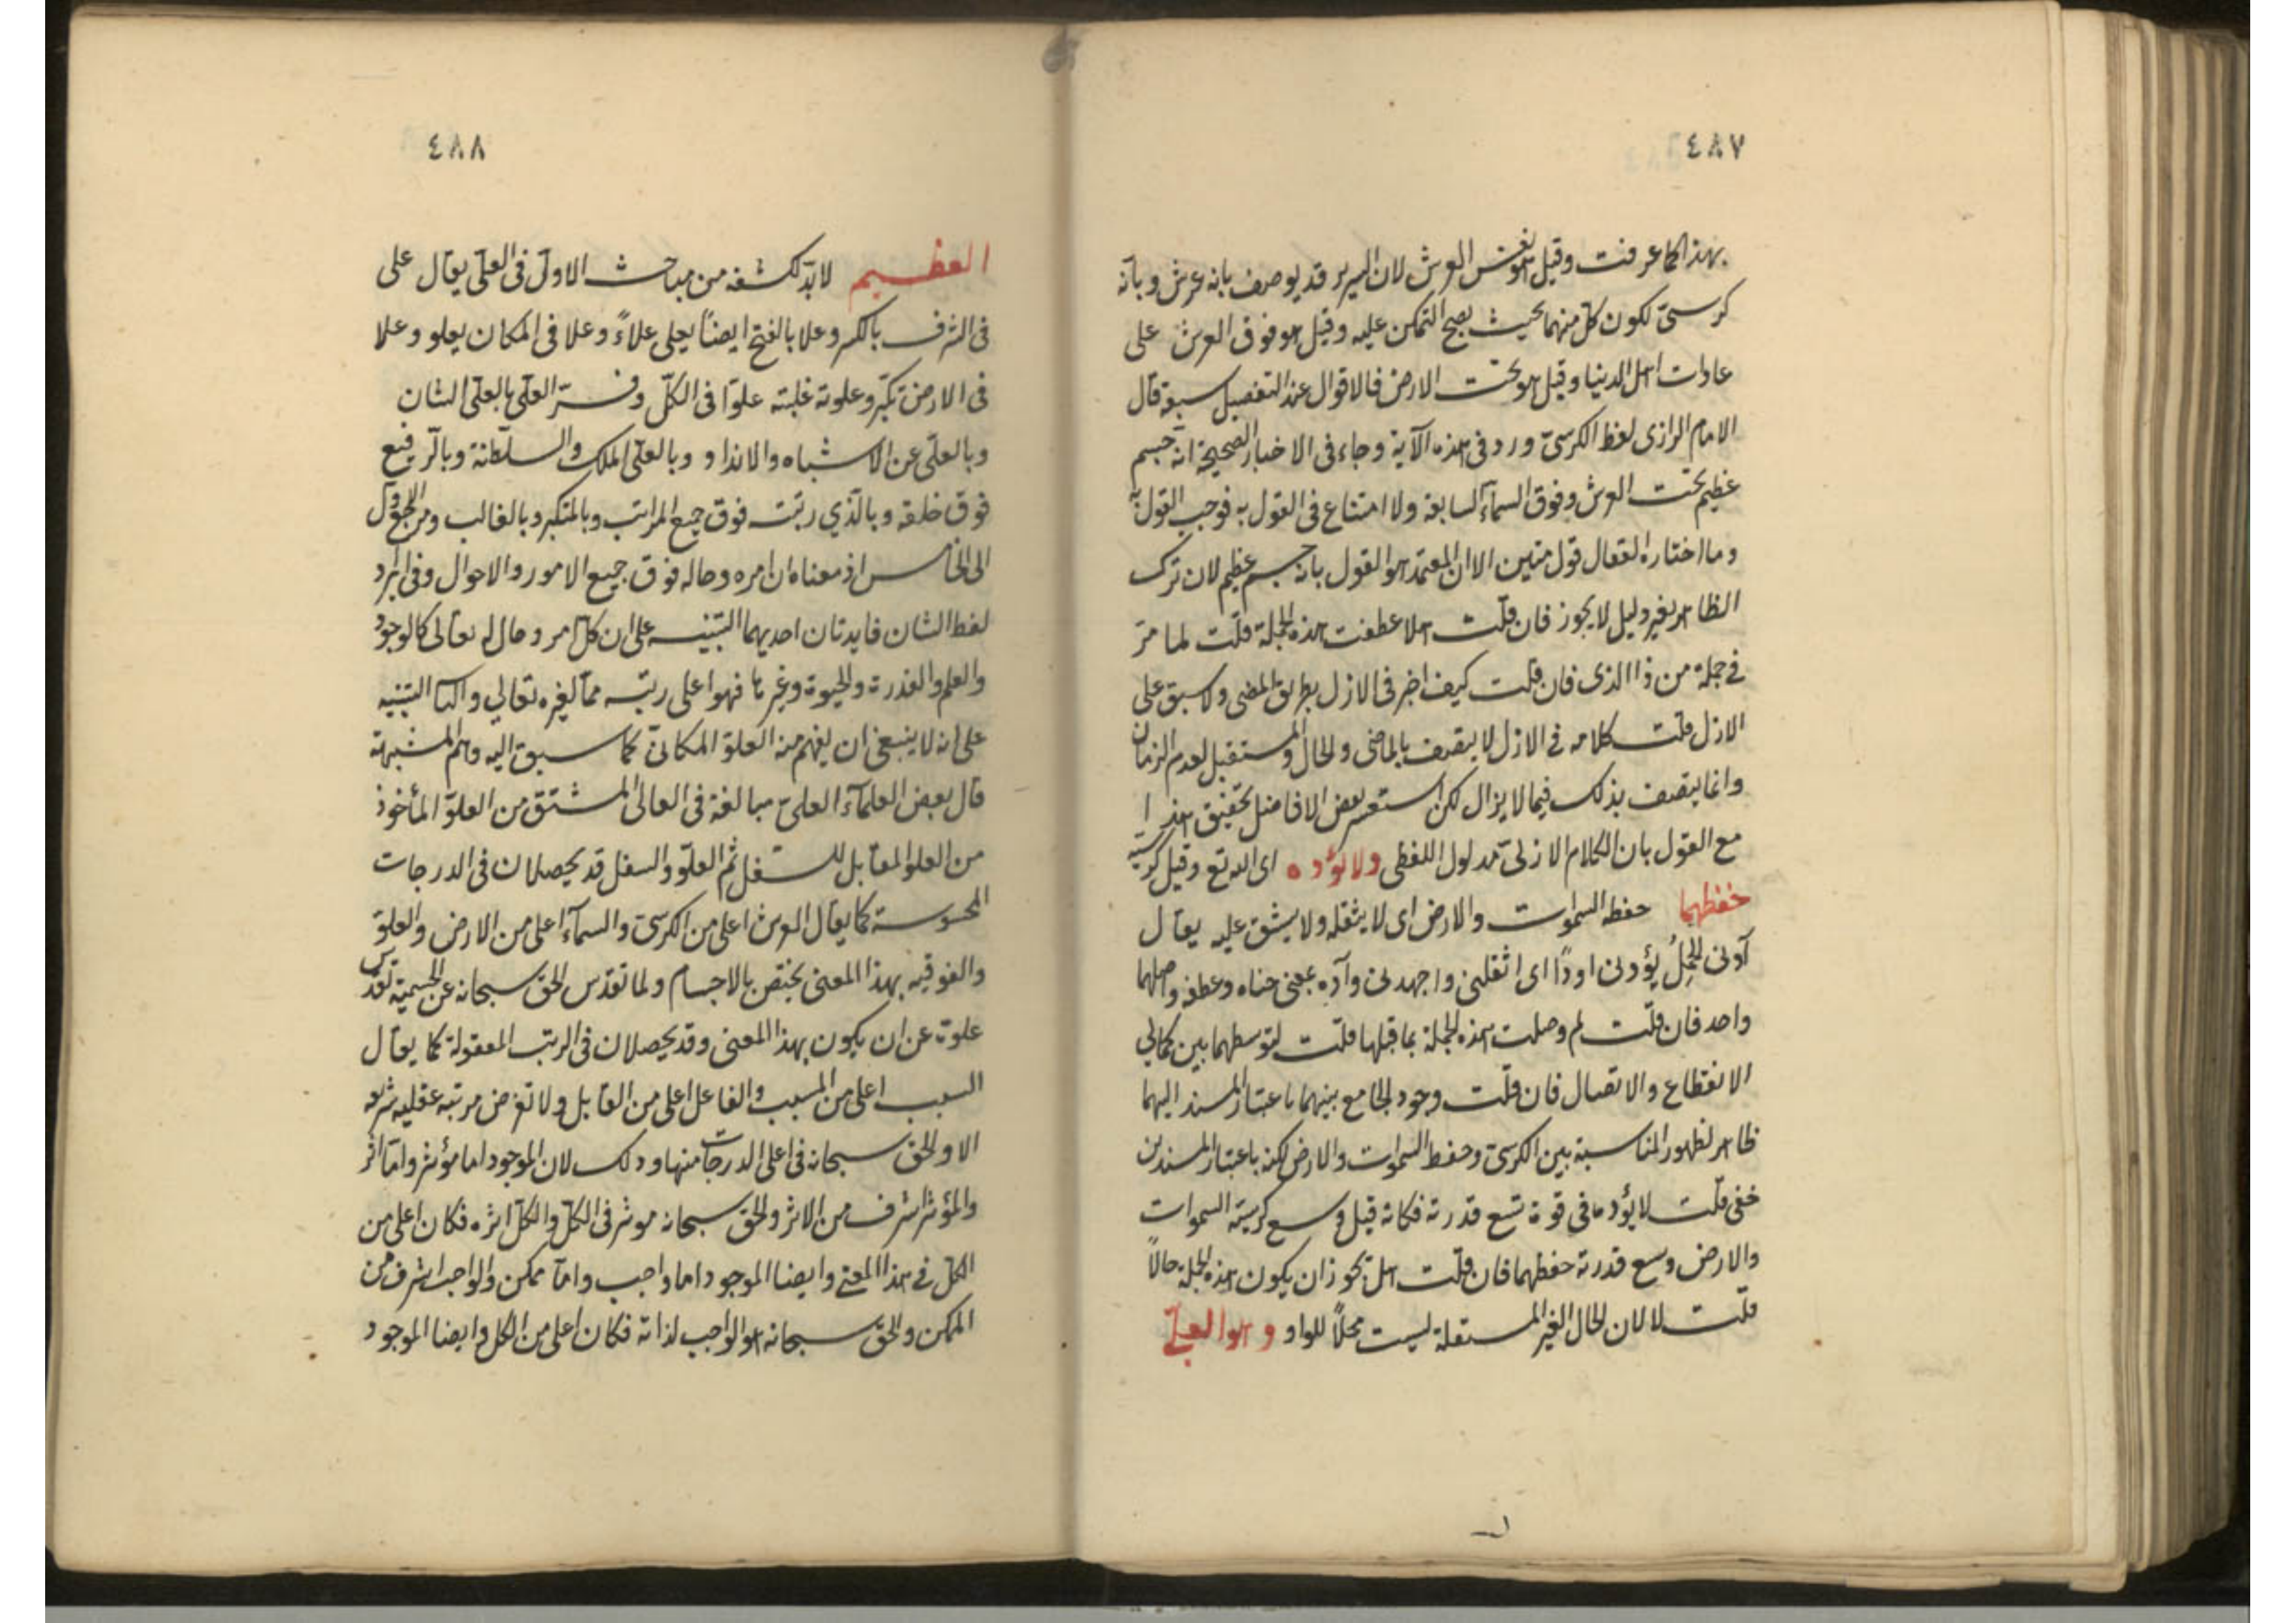 ٤٨٧
بهذا كما عرفت وقيل هو نفس العرش لان السرير قد يوصف بانه عرش وبانه
كرسىّ لكون كل منهما بحيث يصح التمكن عليه وقيل هو فوق العرش على
عادات اهل الدنيا وقيل هو تحت الارض فالاقوال عند التفصيل سبعة قال
الامام الرازى لفظ الكرسىّ ورد فى هذه الآية وجاء فى الاخبار الصحيحة انه جسم
عظيم تحت العرش وفوق السمآء السابعة ولا امتناع فى القول به فوجب القول به
وما اختاره القفال قول متين الا ان المعتمد هو القول بانه جسم عظيم لان ترك
الظاهر بغير دليل لا يجوز فان قلت هلا عطفت هذه الجملة قلت لما مرّ
فى جملة من ذا الذى فان قلت كيف اخبر فى الازل بطريق المضى ولا سبق على
الازل قلت كلامه فى الازل لا يتصف بالماضى والحال والمستقبل لعدم الزمان
وانما يتصف بذلك فيما لا يزال لكن استعسر بعض الافاضل تحقيق هذا
مع القول بان الكلام الازلىّ مدلول اللفظى ولا يؤده اى الله تع وقيل كرسيّه
حفظهما حفظ السموات والارض اى لا يثقله ولا يشق عليه يقال
آدنى الحِملُ يؤدنى اودًا اى اثقلنى واجهدنى وآده بمعنى حناه وعطفه واصلهما
واحد فان قلت لم وصلت هذه الجملة بما قبلها قلت لتوسطهما بين كمالى
الانقطاع والاتصال فان قلت وجود الجامع بينهما باعتبار المسند اليهما
ظاهر لظهور المناسبة بين الكرسىّ وحفظ السموات والارض لكنه باعتبار المسندين
خفى قلت لا يؤده فى قوة تسع قدرته فكانه قيل وسع كرسيّه السموات
والارض وسع قدرته حفظهما فان قلت هل تجوز ان يكون هذه الجملة حالاً
قلت لا لان الحال الغير المستقلة ليست محلاً للواو وهو العلىّ
٤٨٨
العظيم لا بدّ لكشفه من مباحث الاول فى العلىّ يقال على
فى الشرف بالكسر وعلا بالفتح ايضًا يعلى علاءً وعلا فى المكان يعلو وعلا
فى الارض تكبّر وعلوته غلبته علوّا فى الكلّ وفسّر العلىّ بالعلىّ الشان
وبالعلىّ عن الاشباه والانداد وبالعلىّ الملك والسلطنة وبالرفيع
فوق خلقه وبالذي رتبته فوق جميع المراتب وبالمتكبر وبالغالب ومرجع الاول
الى الخامس اذ معناه ان امره وحاله فوق جميع الامور والاحوال وفى ايراد
لفظ الشان فايدتان احديهما التنبيه على ان كلّ امر وحال له تعالى كالوجود
والعلم والقدرة والحيوة وغيرها فهو اعلى رتبه ممّا لغيره تعالى والثانية التنبيه
على انه لا ينبغى ان يفهم منه العلوّ المكانىّ كما سبق اليه وهم المشبهة
قال بعض العلمآء العلىّ مبالغة فى العالى المشتق من العلوّ المأخوذ
من العلو المقابل للسفل ثم العلوّ والسفل قد يحصلان فى الدرجات
المحسوسة كما يقال العرش اعلى من الكرسىّ والسمآء اعلى من الارض والعلوّ
والفوقيه بهذا المعنى يختص بالاجسام ولما تقدّس الحق سبحانه عن الجسميّة تقدّس
علوّه عن ان يكون بهذا المعنى وقد يحصلان فى الرتب المعقولة كما يقال
السبب اعلى من المسبب والفاعل اعلى من القابل ولا تفرض مرتبه عقليه شريفه
الا والحق سبحانه فى اعلى الدرجات منها وذلك لان الموجود اما مؤثر وامّا اثر
والمؤثر اشرف من الاثر والحق سبحانه موثر فى الكلّ والكلّ اثره فكان اعلى من
الكلّ فى هذا المعنى وايضا الموجود اما واجب وامّا ممكن والواجب اشرف من
الممكن والحق سبحانه هو الواجب لذاته فكان اعلى من الكل وايضا الموجود